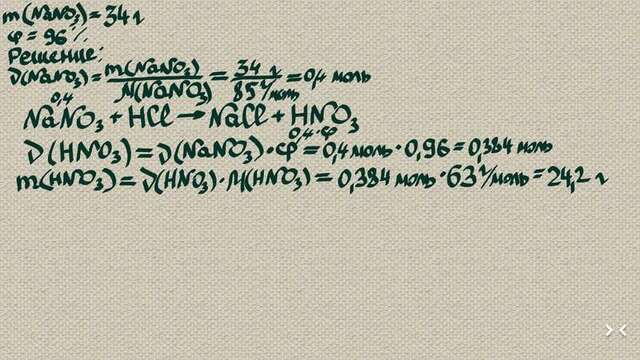 m(NaNO₃) = 34 г
φ = 96%
Решение:
ν(NaNO₃) = m(NaNO₃)/M(NaNO₃) = 34 г/85 г/моль = 0,4 моль
0,4
NaNO₃ + HCl → NaCl + HNO₃
0,4·φ
ν(HNO₃) = ν(NaNO₃)·φ = 0,4 моль·0,96 = 0,384 моль
m(HNO₃) = ν(HNO₃)·M(HNO₃) = 0,384 моль·63 г/моль = 24,2 г